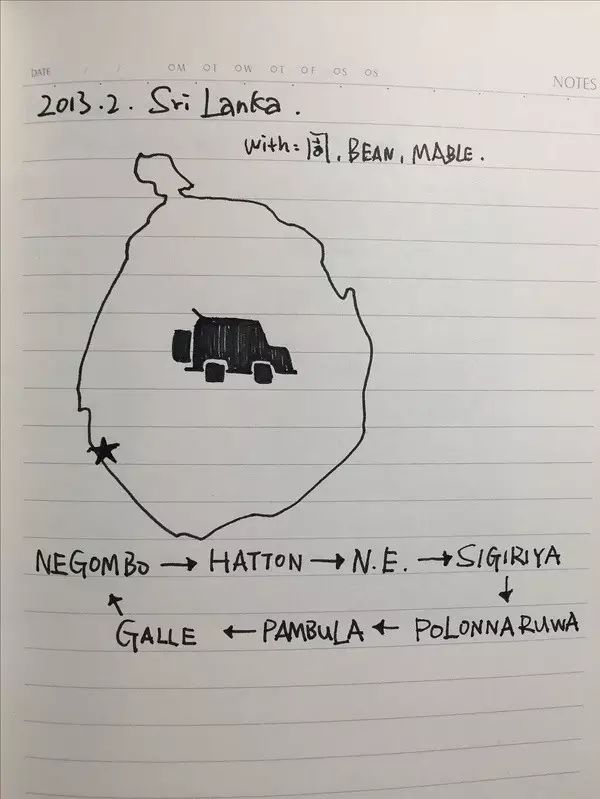 DATE / / OM OT OW OT OF OS OS
NOTES
2013.2. Sri Lanka.
with: 周, BEAN, MABLE.
NEGOMBO → HATTON → N.E. → SIGIRIYA
↓
↖ GALLE ← PAMBULA ← POLONNARUWA